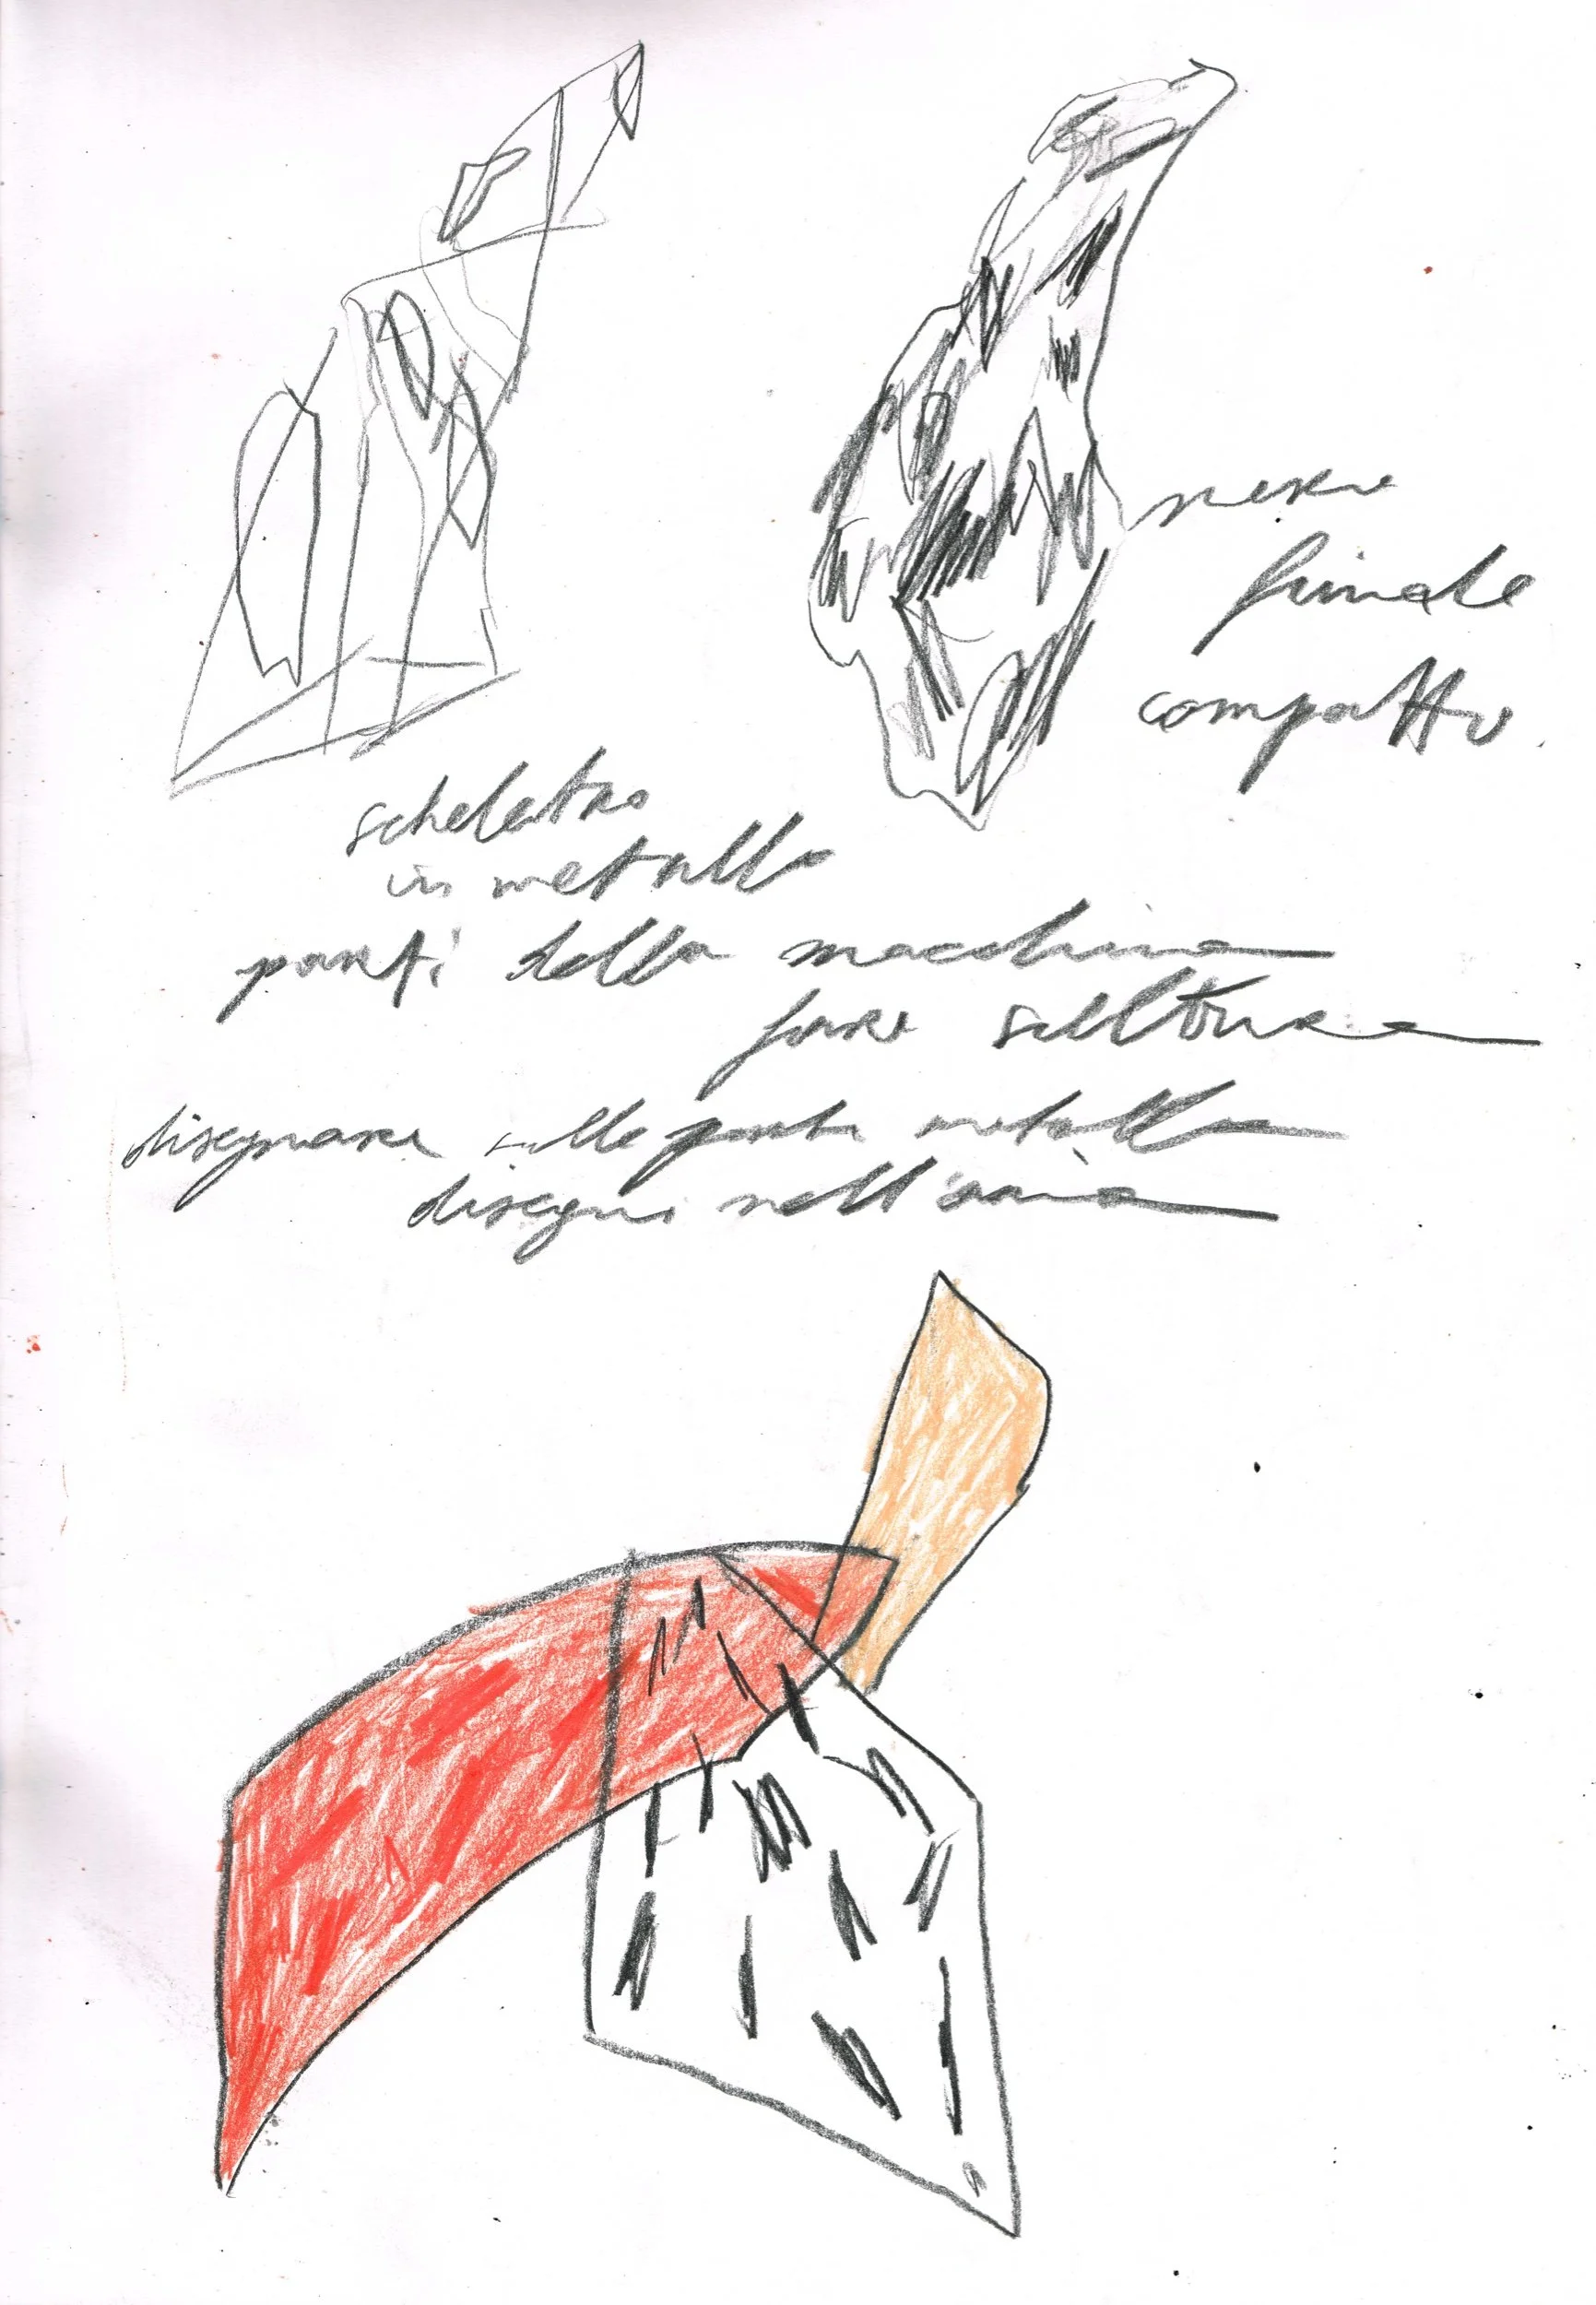 finale
compatto
scheletro
in metallo
parti della macchina
fare scultura
disegnare sulle parti metallo
disegni nell'aria